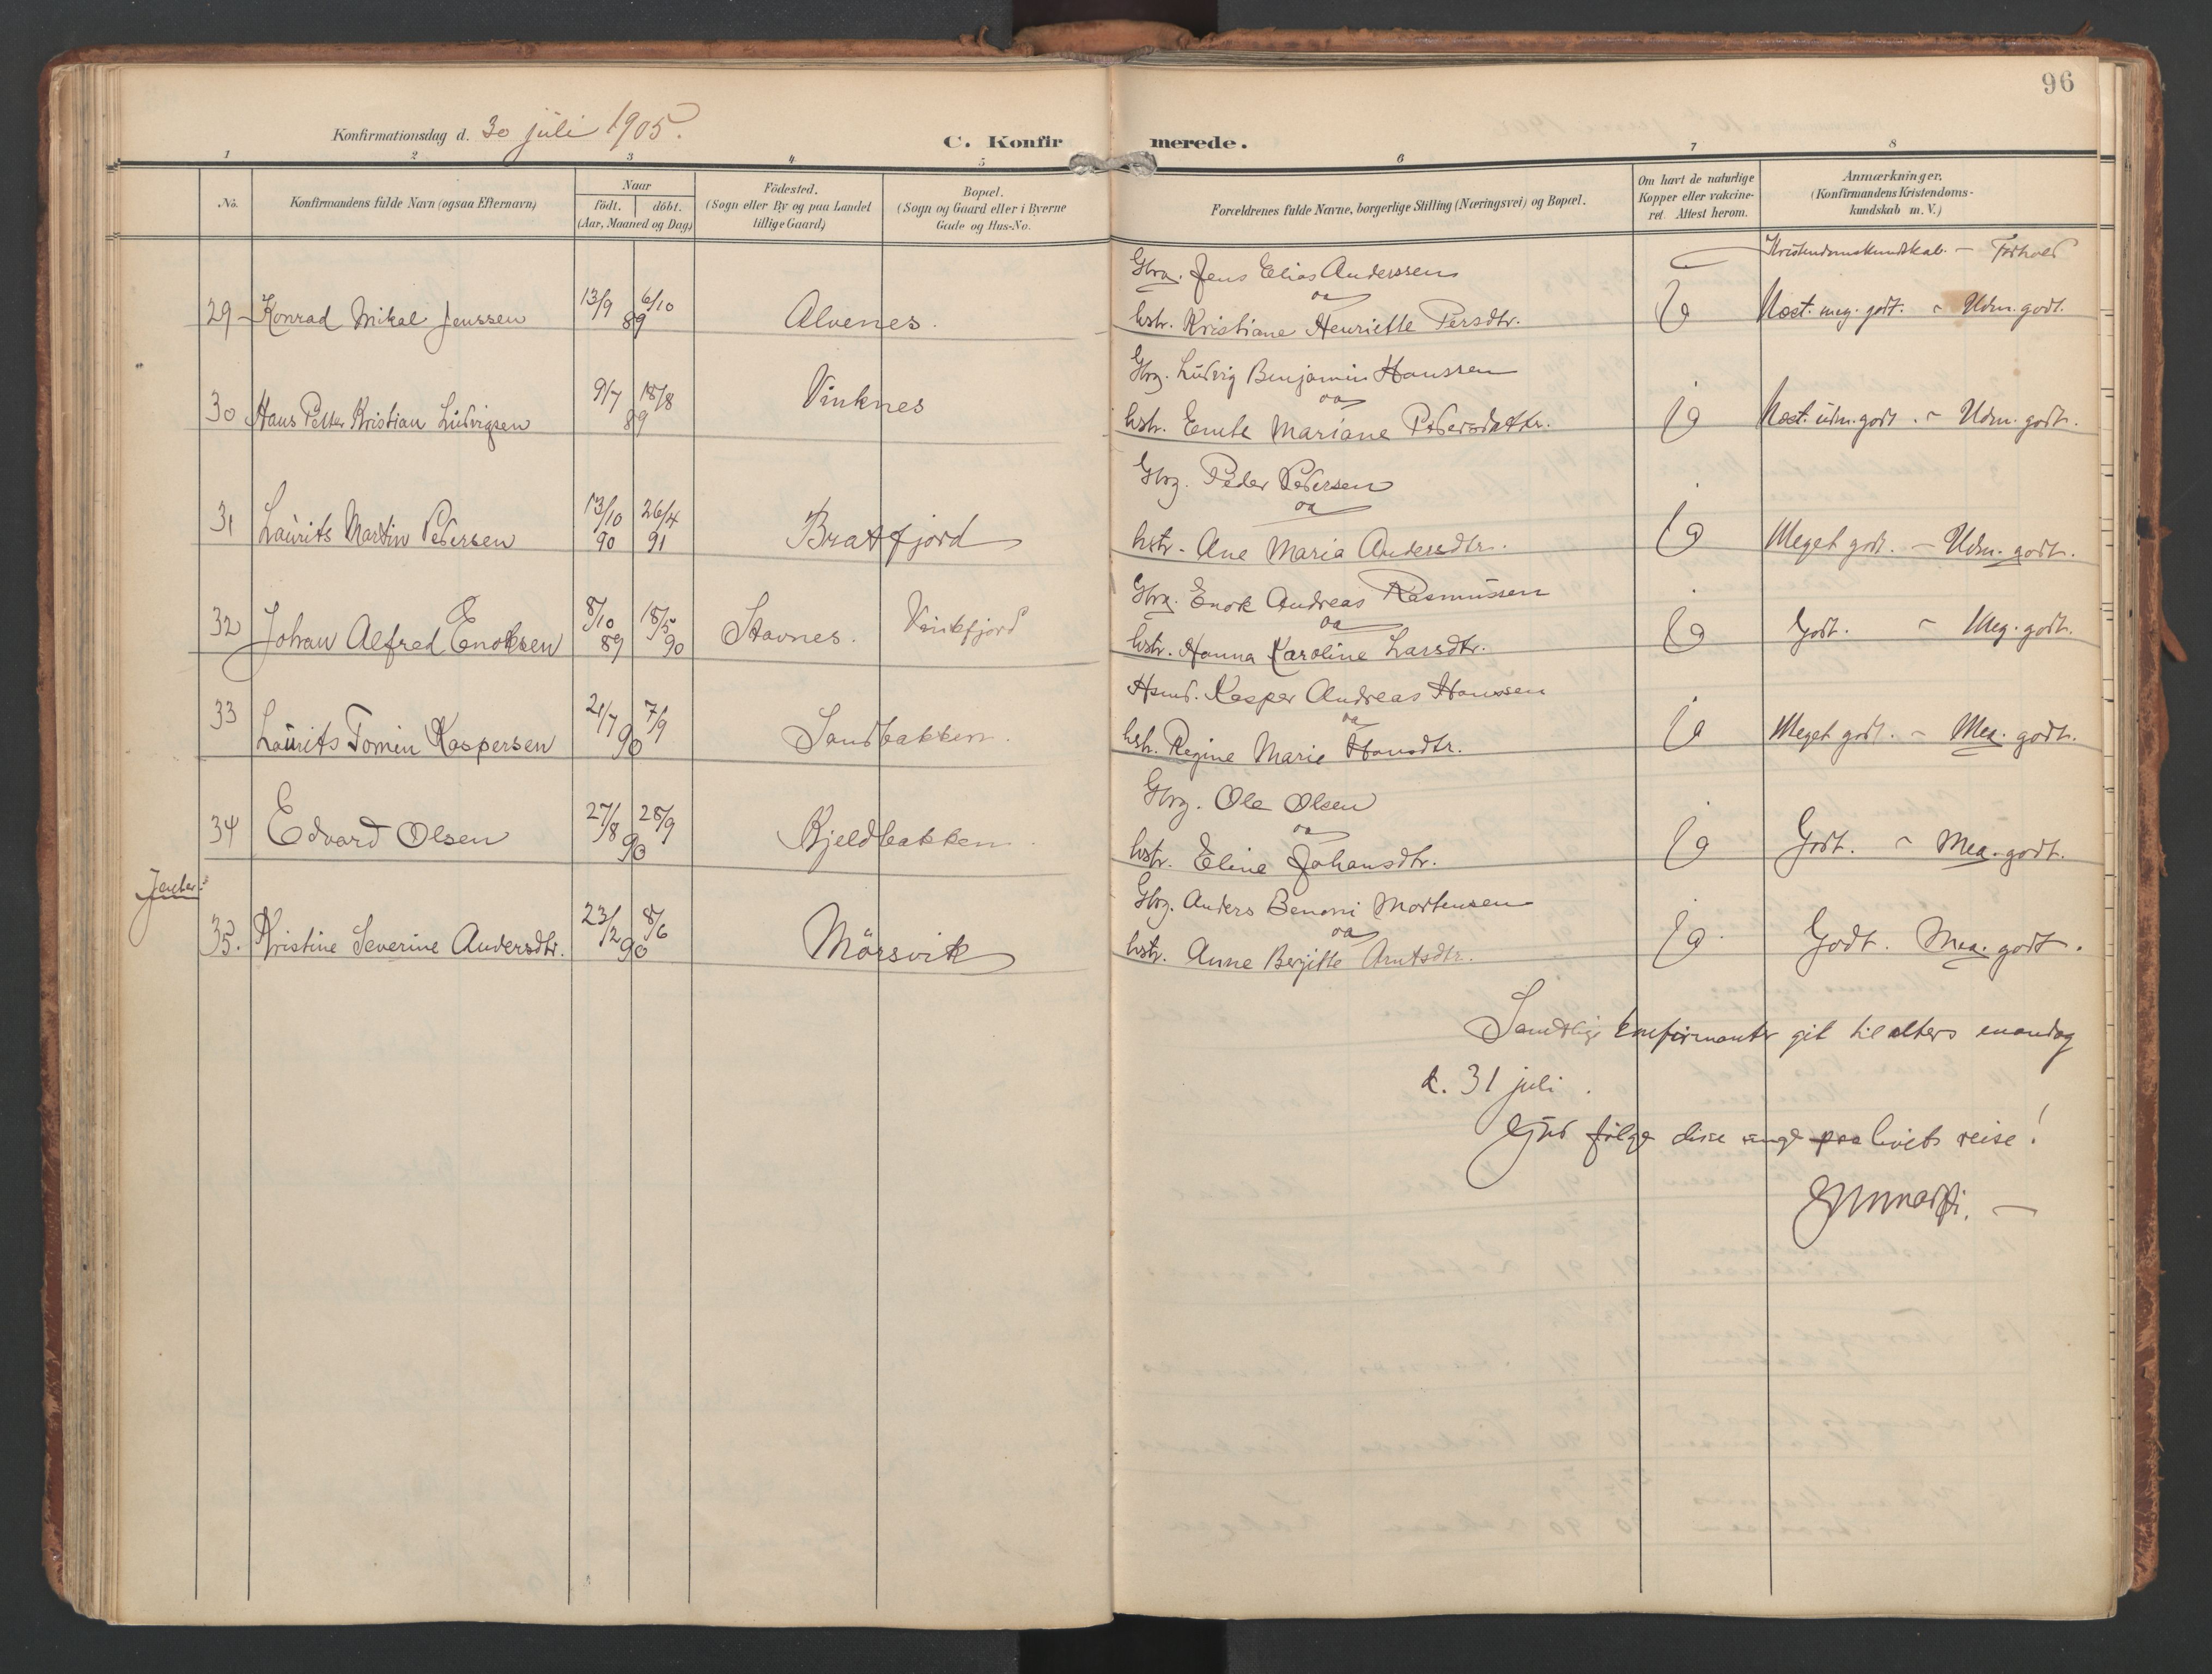 96
Konfirmationsdag d. 30 juli 1905.
C. Konfirmerede.
1 2 3 4 5 6 7 8
No. Konfirmandens fulde Navn (ogsaa Efternavn) Naar født. døbt. (Aar, Maaned og Dag) Födested. (Sogn eller By og paa Landet tillige Gaard) Bopæl. (Sogn og Gaard eller i Byerne Gade og Hus-No. Forældrenes fulde Navne, borgerlige Stilling (Næringsvei) og Bopæl. Om havt de naturlige Kopper eller vakcineret. Attest herom. Anmærkninger. (Konfirmandens Kristendomskundskab m. V.)
Kristendomskundskab. – Forhold
Gbrg. Jens Elias Anderssen
oa
29 Konrad Mikal Jenssen 13/9 6/10 89 Alvenes. hstr. Kristiane Henriette Persdtr. ja Næst. meg. godt. – Udm. godt.
Gbrg. Ludvig Benjamin Hanssen
oa
30 Hans Petter Kristian Ludvigsen 9/7 18/8 89 Vinknes hstr. Emte Mariane Pedersdattr. ja Næst. udm. godt. – Udm. godt.
Gbrg. Peder Pedersen
oa
31 Laurits Martin Pedersen 13/10 90 26/4 91 Bratfjord hstr. Ane Maria Andersdtr. ja Meget godt. – Udm. godt.
Gbrg. Enok Andreas Rasmussen
oa
32 Johan Alfred Enoksen 8/10 89 18/5 90 Stavnes. Vinkfjord hstr. Hanna Karoline Larsdtr. ja Godt. – Meg. godt.
Hsmd. Kasper Andreas Hanssen
oa
33 Laurits Tomin Kaspersen 21/7 7/9 90 Sandbakken. hstr. Regine Marie Hansdtr. ja Meget godt. – Meg. godt.
Gbrg. Ole Olsen
oa
34 Edvard Olsen 27/8 28/9 90 Kjeldbakken. hstr. Eline Johansdtr. ja Godt. – Meg. godt.
Jenter:
Gbrg. Anders Benoni Mortensen
oa
35. Kristine Severine Andersdtr. 23/2 8/6 90 Mörsvik hstr. Anne Bergitte Arntsdtr. ja Godt. Meg. godt.
Samtlige konfirmanter gik til alters mandag
d. 31 juli.
Gud følge disse unge paa livets reise!